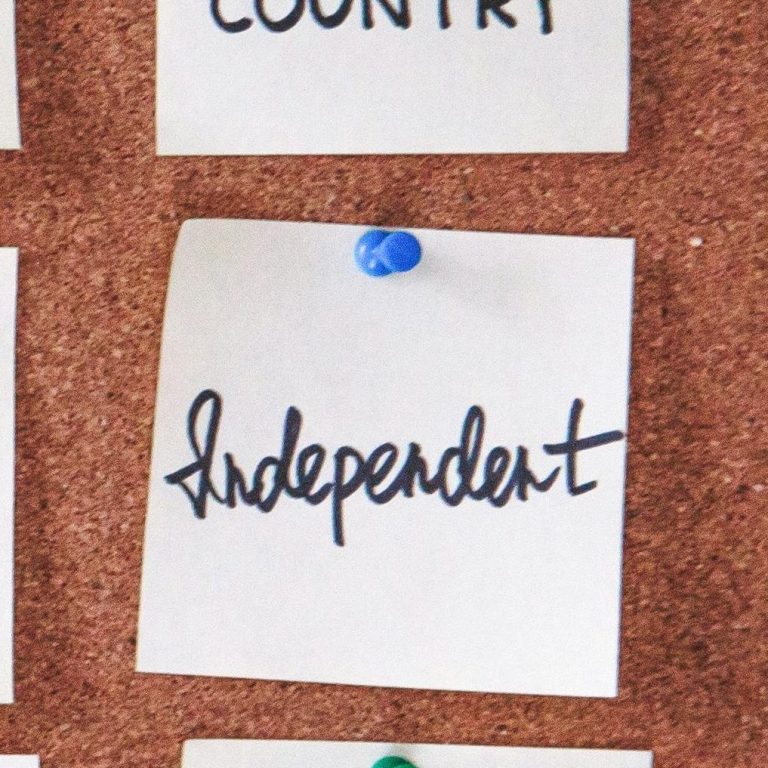 COUNTRY
Independent